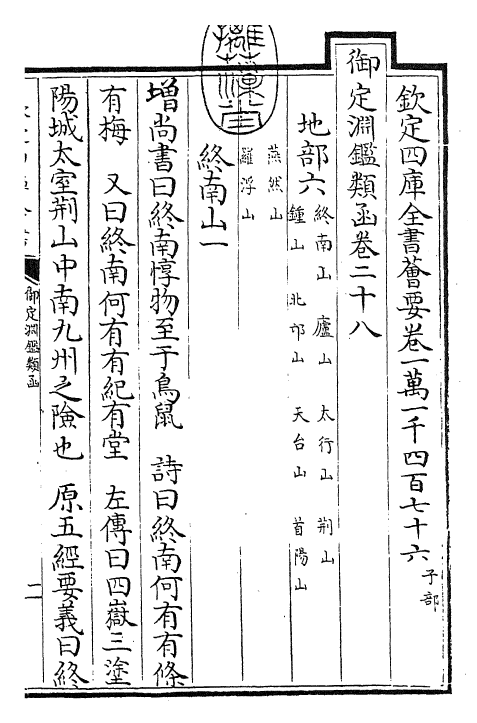 欽定四庫全書薈要卷一萬一千四百七十六 子部
御定淵鑑類函卷二十八
地部六 終南山 廬山 太行山 荆山
鍾山 北邙山 天台山 首陽山
燕然山
羅浮山
終南山一
增尚書曰終南惇物至于鳥鼠 詩曰終南何有有條
有梅 又曰終南何有有紀有堂 左傳曰四嶽三塗
陽城太室荆山中南九州之險也 原五經要義曰終
御定淵鑑類函